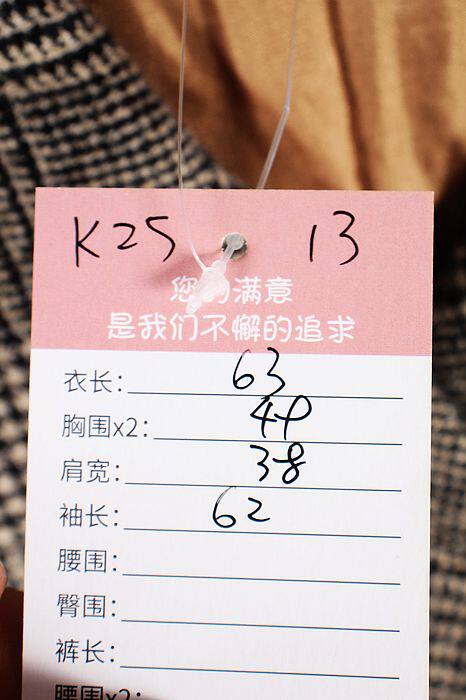 K25 13
您的满意
是我们不懈的追求
衣长: 63
胸围x2: 49
肩宽: 38
袖长: 62
腰围:
臀围:
裤长:
腰围x2: